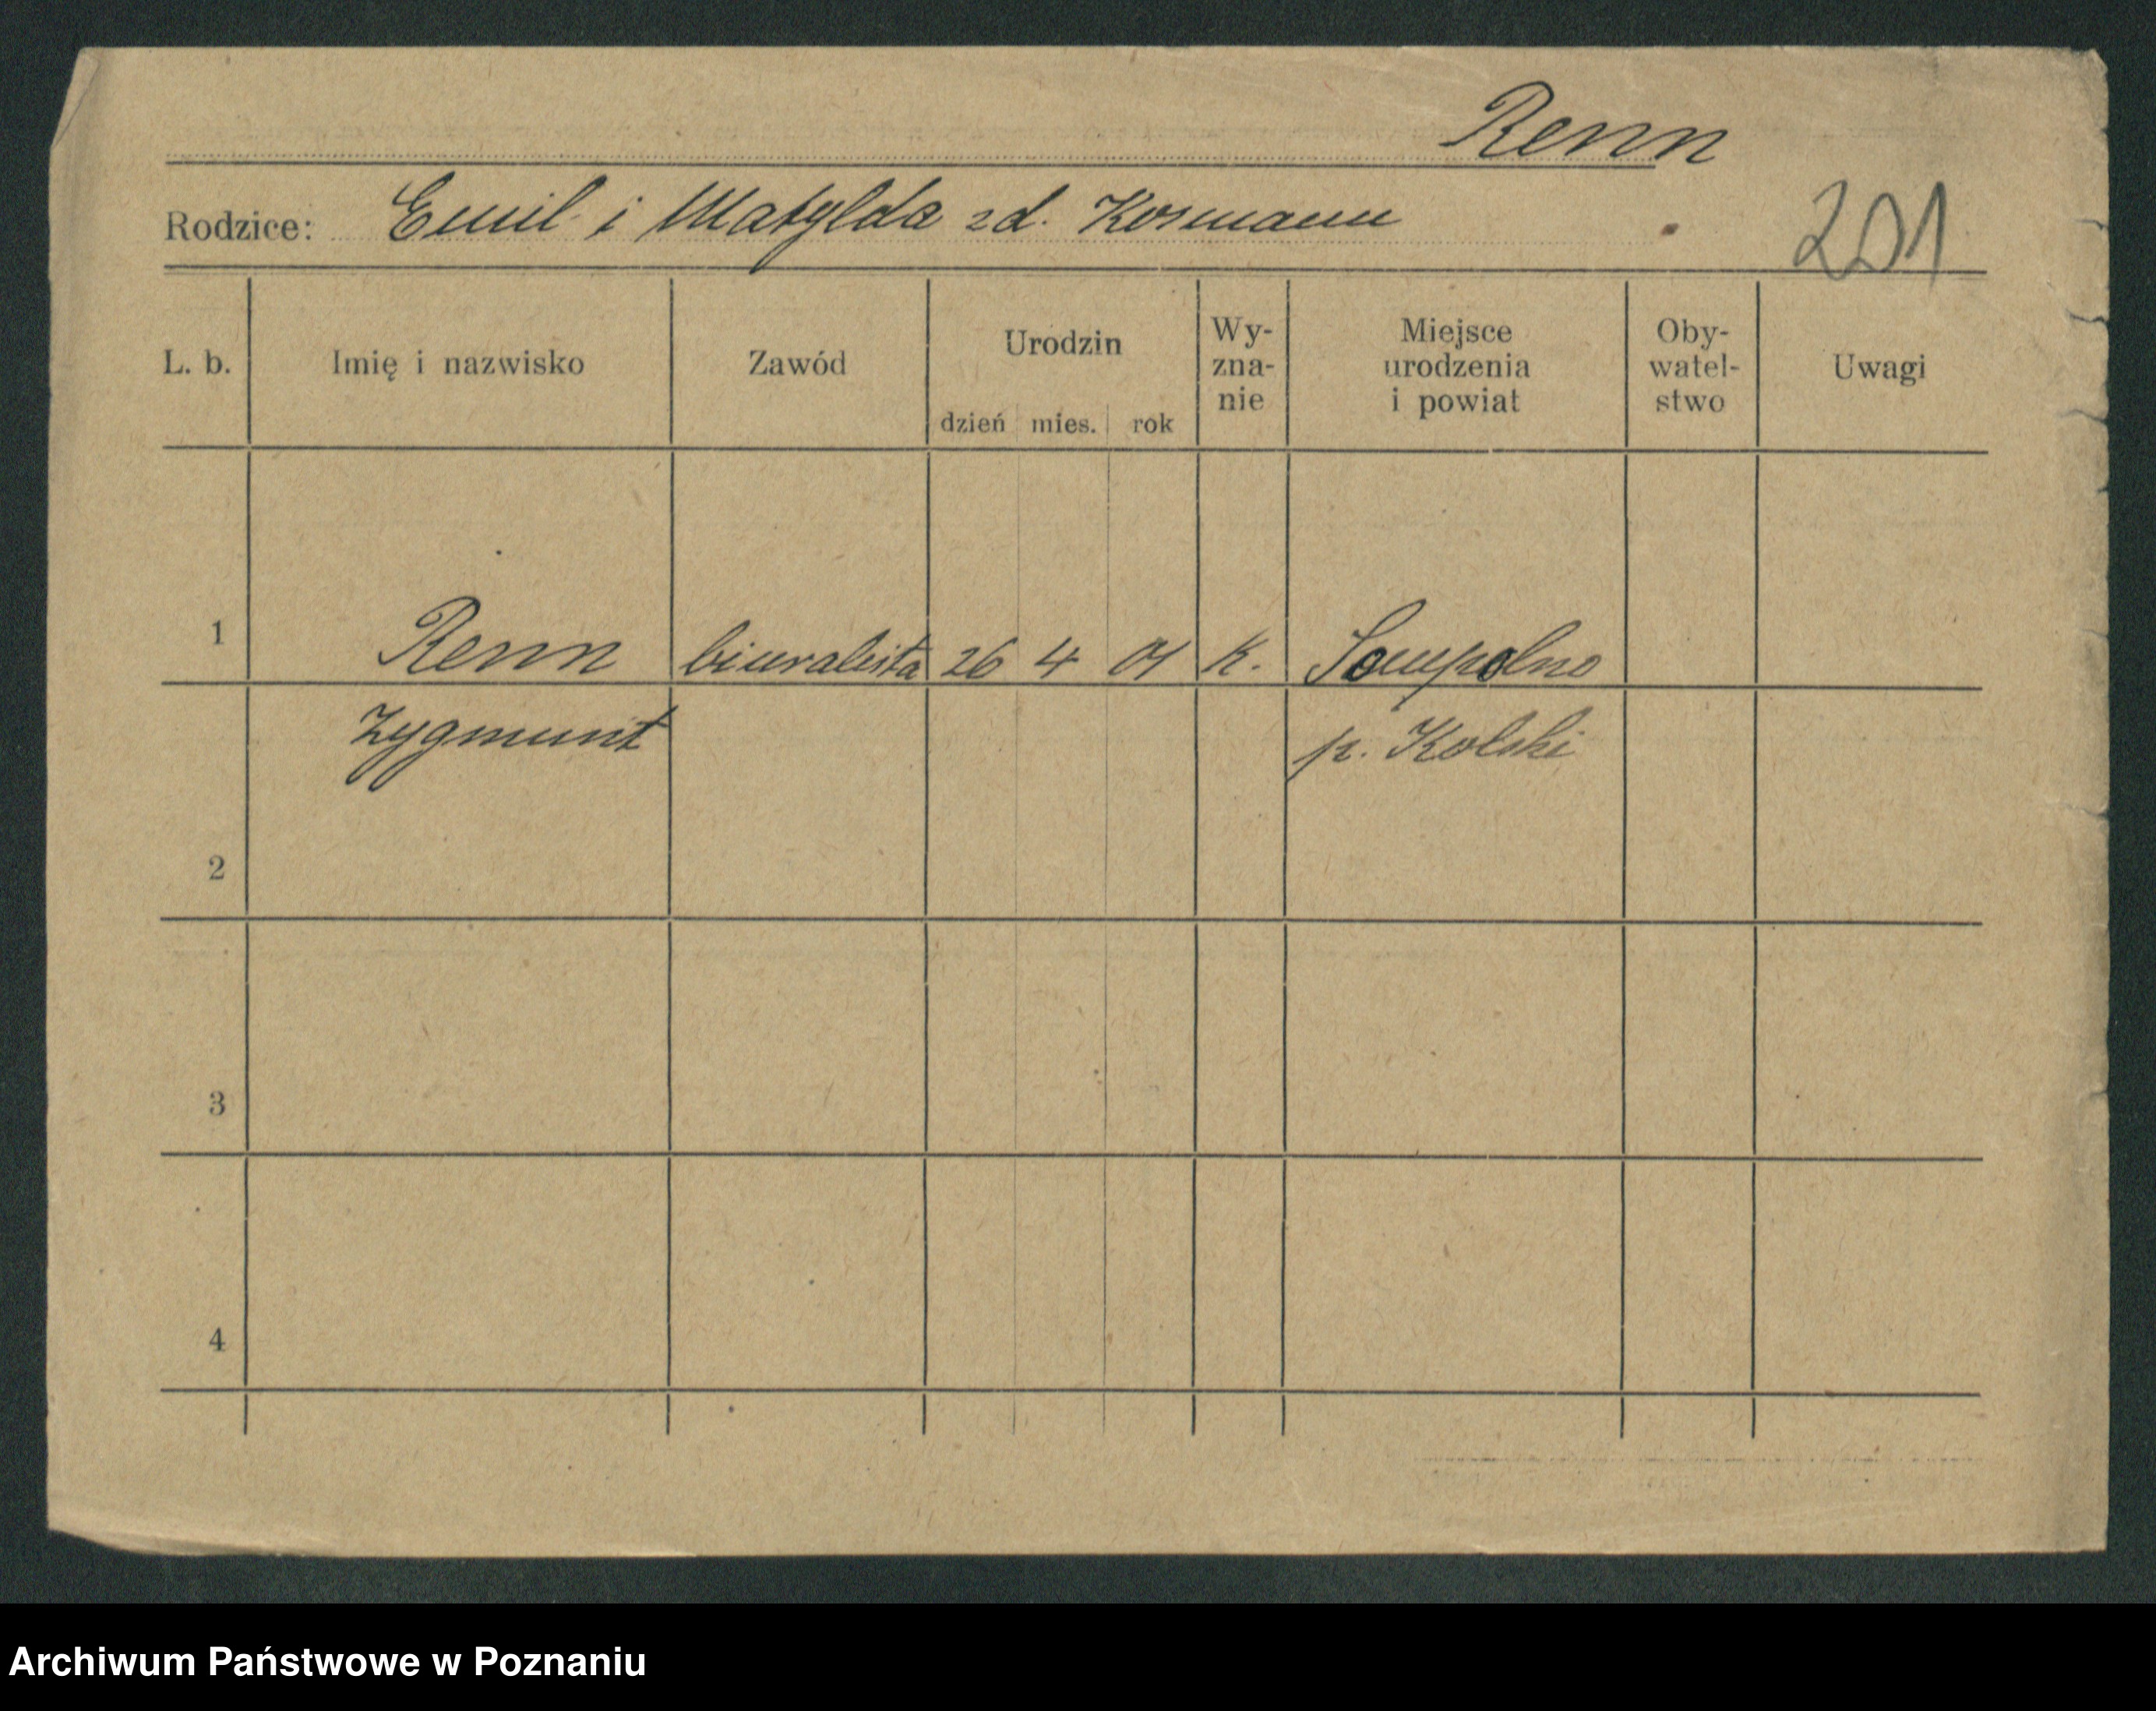 Renn
Rodzice: Emil i Matylda zd. Kosmann
201
L. b. Imię i nazwisko Zawód Urodzin Wy- zna- nie Miejsce urodzenia i powiat Oby- watel- stwo Uwagi
dzień mies. rok
1 Renn biuralista 26 4 01 K. Sompolno
Zygmunt p. Kolski
2
3
4
Archiwum Państwowe w Poznaniu